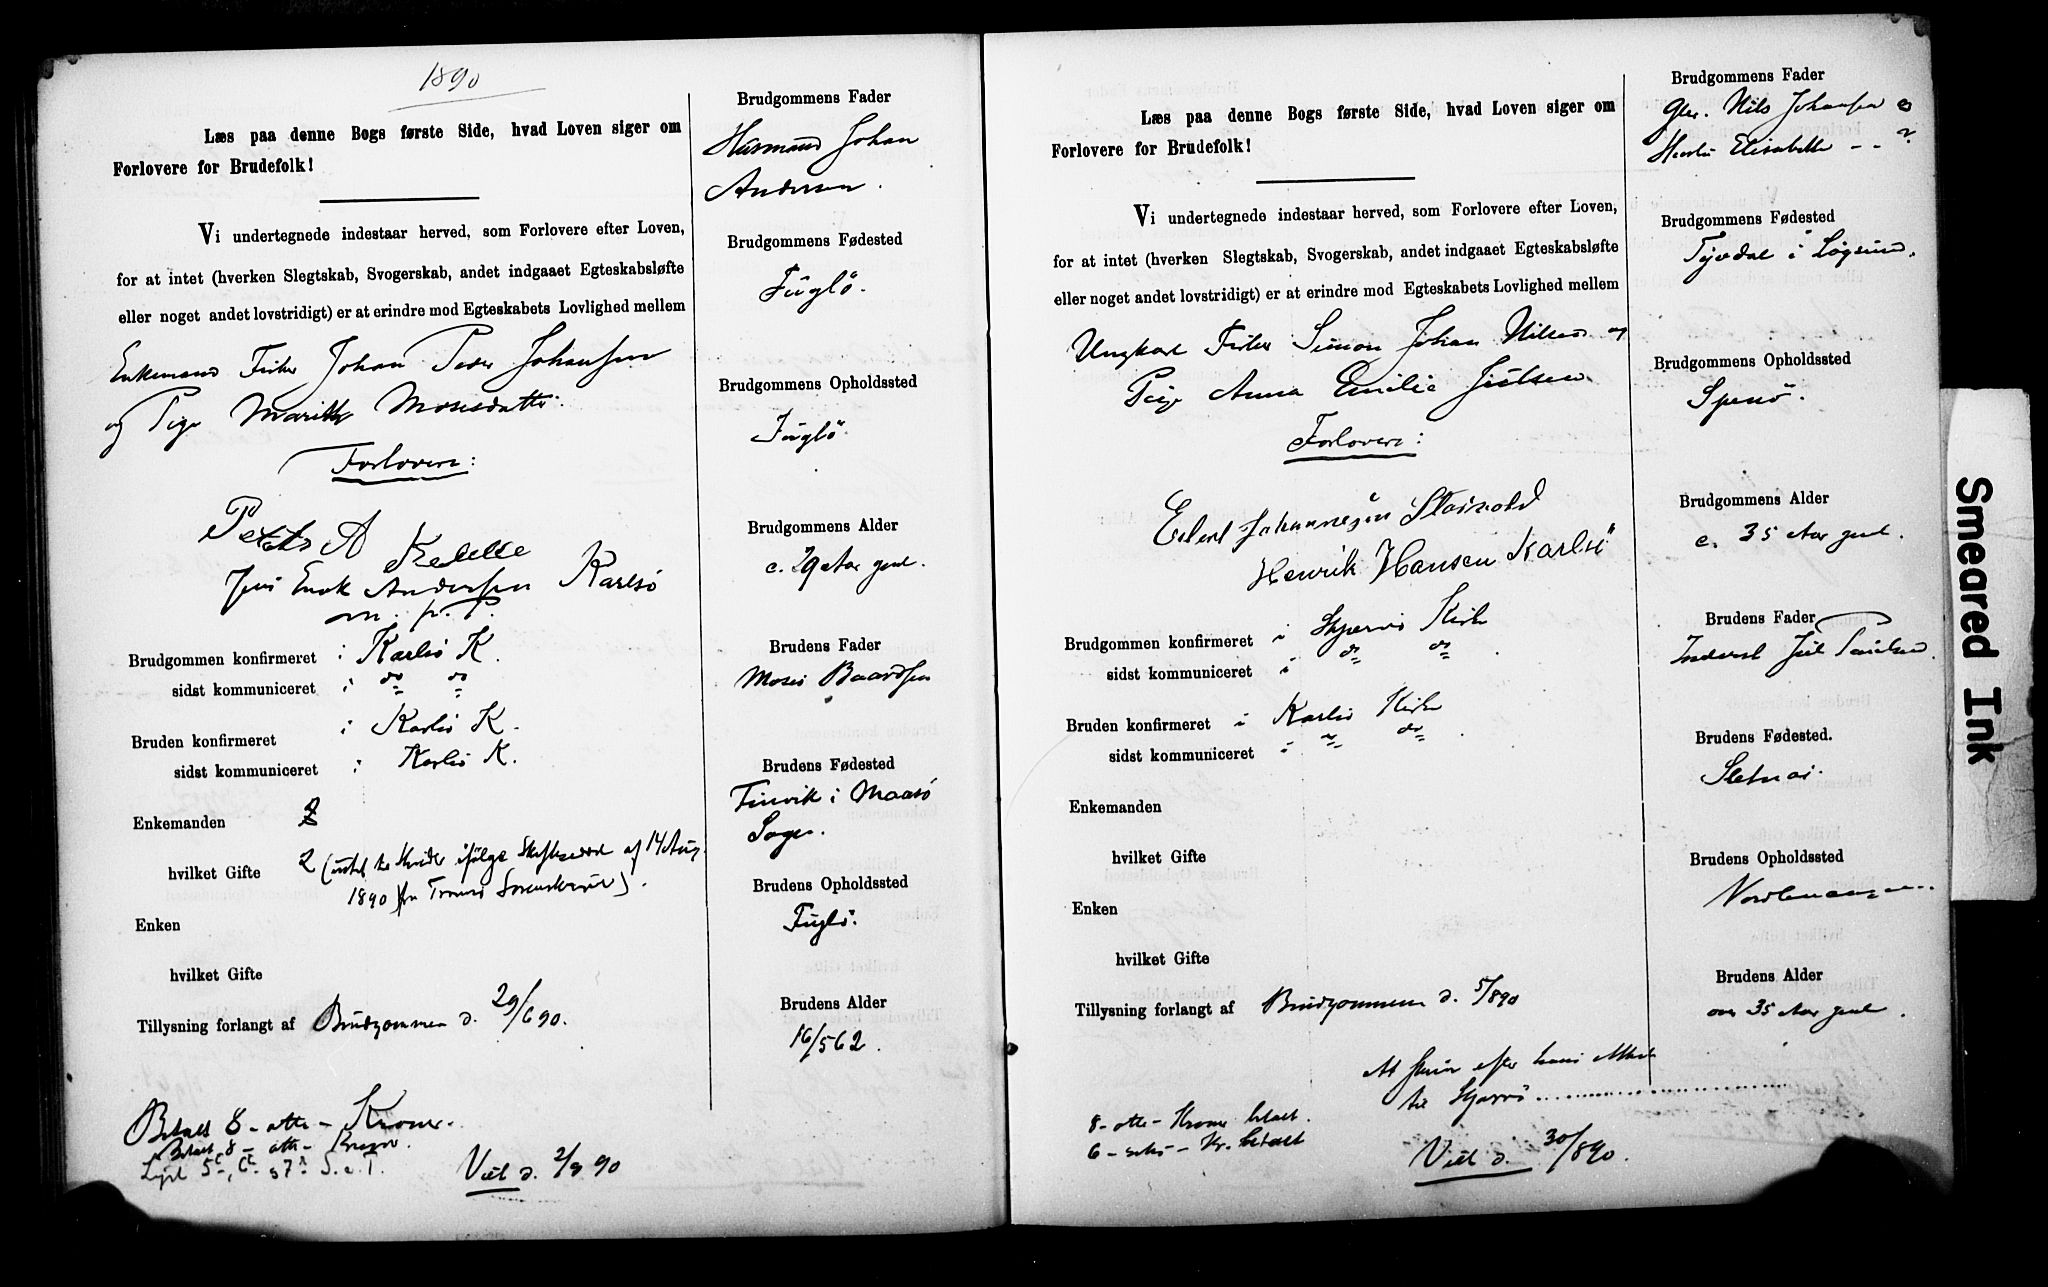 1890
Læs paa denne Bogs første Side, hvad Loven siger om
Forlovere for Brudefolk!
Vi undertegnede indestaar herved, som Forlovere efter Loven,
for at intet (hverken Slegtskab, Svogerskab, andet indgaaet Egteskabsløfte
eller noget andet lovstridigt) er at erindre mod Egteskabets Lovlighed mellem
Enkemand Fisker Johan Peder Johansen
og Pige Marith Mosesdatter.
Forlovere:
Peter A
Jens Enok Andersen Karlsø
m. p. P.
Brudgommen konfirmeret i Karlsø K.
sidst kommuniceret i do do
Bruden konfirmeret i Karlsø K.
sidst kommuniceret i Karlsø K.
Enkemanden
hvilket Gifte 2 ( ifølge af 14 Aug
1890 fra Tromsø Sorenskriver).
Enken
hvilket Gifte
Tillysning forlangt af Brudgommen d. 29/6 90.
Betalt 8 - otte - Kroner.
Betalt 8 - otte - Kroner.
Lyst 5te, 6te og 7de S. e. T.
Viet d. 2/9 90
Brudgommens Fader
Husmand Johan
Andersen.
Brudgommens Fødested
Fuglø.
Brudgommens Opholdssted
Fuglø.
Brudgommens Alder
c. 29 Aar gml.
Brudens Fader
Moses Baardsen
Brudens Fødested
Finvik i Maasø
Sogn.
Brudens Opholdssted
Fuglø.
Brudens Alder
16/5 62.
Læs paa denne Bogs første Side, hvad Loven siger om
Forlovere for Brudefolk!
Vi undertegnede indestaar herved, som Forlovere efter Loven,
for at intet (hverken Slegtskab, Svogerskab, andet indgaaet Egteskabsløfte
eller noget andet lovstridigt) er at erindre mod Egteskabets Lovlighed mellem
Ungkarl Fisker Simon Johan Nilsen og
Pige Anna Emilie Julsen
Forlovere:
Edvard Johannesen
Henrik Hansen Karlsø
Brudgommen konfirmeret i Skjervø Kirke
sidst kommuniceret i do do
Bruden konfirmeret i Karlsø Kirke
sidst kommuniceret i do do.
Enkemanden
hvilket Gifte
Enken
hvilket Gifte
Tillysning forlangt af Brudgommen d. 5/8 90
At skrive efter hans Attest
til Skjervø
8 - otte - Kroner betalt.
6 - seks - Kr. betalt
Viet d. 30/8 90.
Brudgommens Fader
Nils Johansen og
Hustru Elisabeth - - ?
Brudgommens Fødested
Tyvdal i Løgsund.
Brudgommens Opholdssted
Spenø.
Brudgommens Alder
c. 35 Aar gml.
Brudens Fader
Inderst Jul Paulsen.
Brudens Fødested.
Sletnæs.
Brudens Opholdssted
Brudens Alder
over 35 Aar gml.
Smeared Ink